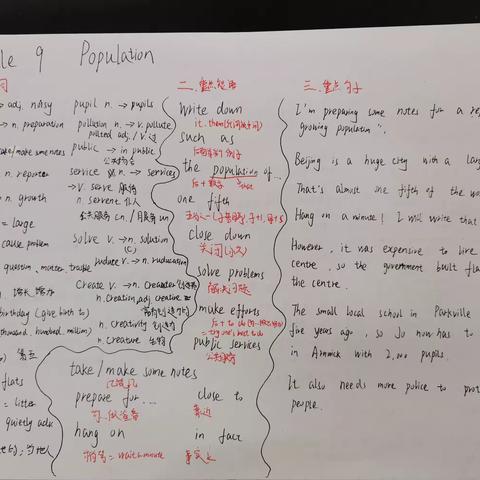 le 9 Population
词
→ adj. noisy
→ n. preparation
take/make some notes
n. reporter
n. growth
= large
cause problem
question, matter, trouble
birthday (give birth to)
thousand, hundred, million)
第五
flats
= litter
quietly adv.
pupil n. → pupils
pollution n. → v. pollute
polluted adj. / v.过
public → in public
公共场合
service n. → services
→ v. serve 服务
n. servent 仆人
公共服务 cn / 服务 un
solve v. → n. solution
(C)
create v. → n. creator
n. creation adj. creative
n. creativity 创造力
n. creature 生物
二. 重点短语
write down
such as
the population of...
one fifth
close down
关闭(永久)
solve problems
解决问题
make efforts
= try one's best to do
public services
公共服务
take/make some notes
记笔记
prepare for...
为...做准备
close to
靠近
hang on
稍等 = wait a minute
in fact
事实上
三. 重点句子
I'm preparing some notes for a re
growing population".
Beijing is a huge city with a larg
That's almost one fifth of the wo
Hang on a minute! I will write that
However, it was expensive to live
centre, so the government built fla
the centre.
The small local school in Parkville
five years ago, so Jo now has to
in Arnwick with 2,000 pupils.
It also needs more police to prot
people.